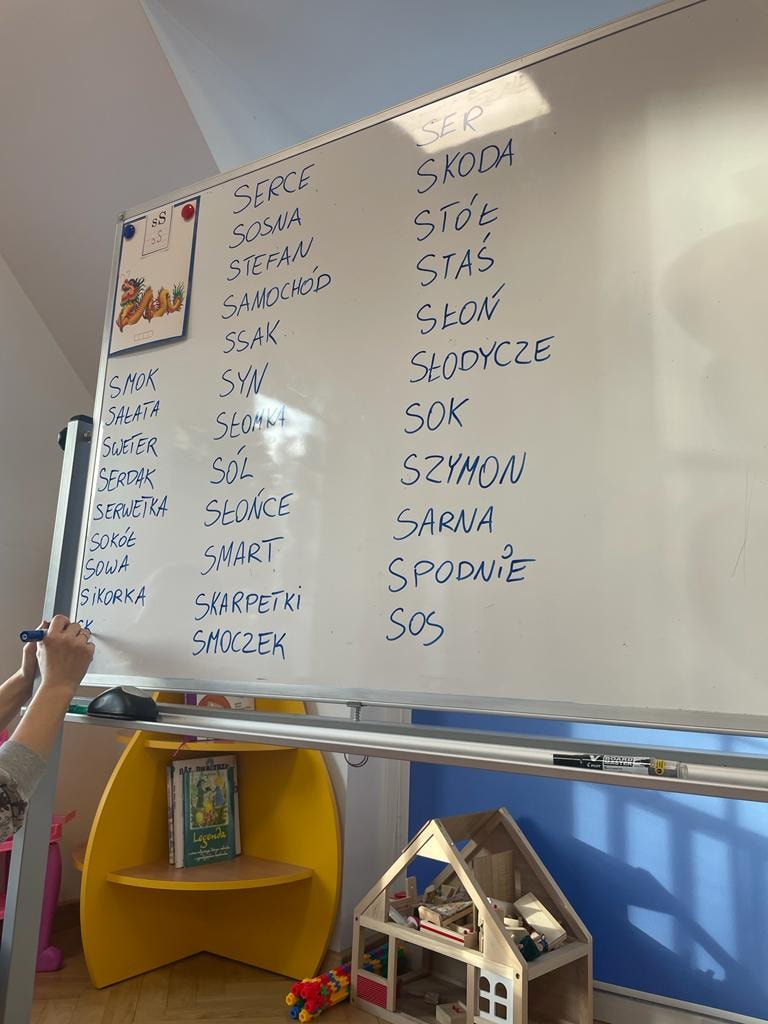 sS
sS
SMOK
SAŁATA
SWETER
SERDAK
SERWETKA
SOKÓŁ
SOWA
SIKORKA
SK
SERCE
SOSNA
STEFAN
SAMOCHÓD
SSAK
SYN
SŁOMKA
SÓL
SŁOŃCE
SMART
SKARPETKI
SMOCZEK
SER
SKODA
STÓŁ
STAŚ
SŁOŃ
SŁODYCZE
SOK
SZYMON
SARNA
SPODNIE
SOS
Legenda
BOARD
MASTER
PILOT